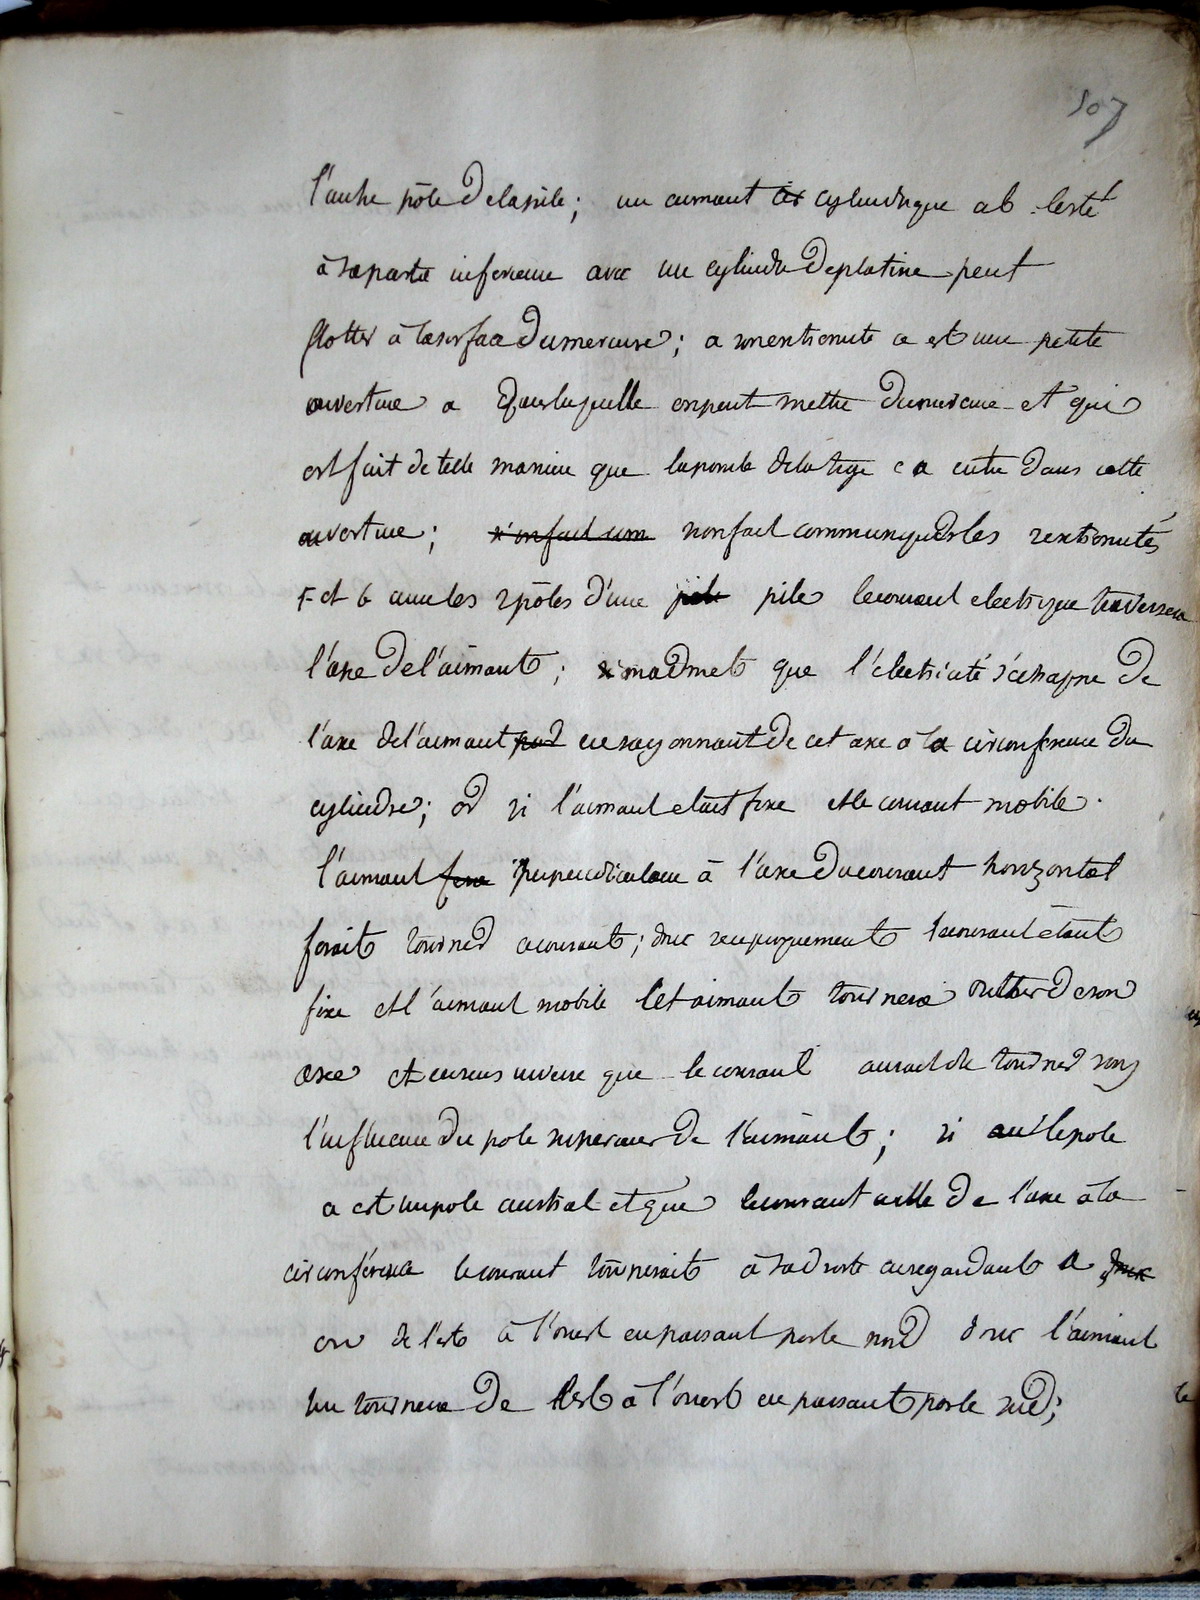 507
l'autre pôle de la pile; un aimant cylindrique ab lesté
à sa partie inferieure avec un cylindre de platine peut
flotter à la surface du mercure; a son extremité a est une petite
ouverture a dans laquelle on peut mettre du mercure et qui
est fait de telle maniere que la pointe de la tige c a entre dans cette
ouverture; si on fait communiquer les 2 extremités
F et b avec les 2 pôles d'une pile le courant electrique traversera
l'axe de l'aimant; si on admet que l'électricité s'échappe de
l'axe de l'aimant en rayonnant de cet axe a la circonference du
cylindre; or si l'aimant etait fixe et le courant mobile.
l'aimant perpendiculaire à l'axe du courant horizontal
ferait tourner ce courant; donc reciproquement le courant étant
fixe et l'aimant mobile cet aimant tournera autour de son
axe et en sens inverse que le courant aurait dû tourner sous
l'influence du pole superieur de l'aimant; si le pole
a est un pole austral et que le courant aille de l'axe à la
circonférence le courant tournerait à sa droite en regardant a
ou de l'est à l'ouest en passant par le nord donc l'aimant
lui tournera de l'est à l'ouest en passant par le sud;